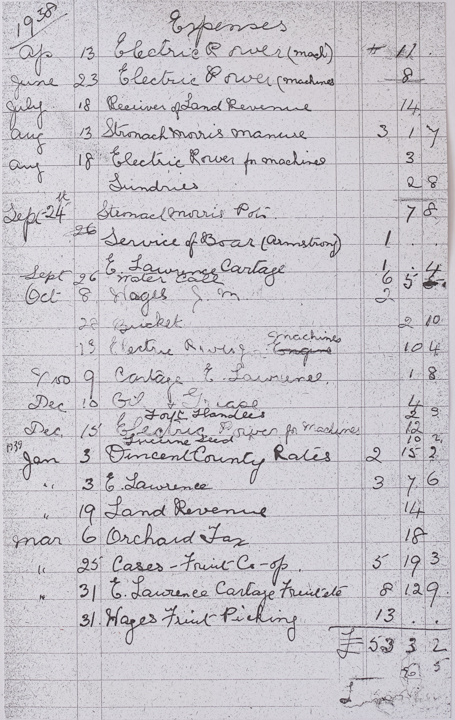 1938
Expenses
Ap 13 Electric Power (mach) 11 .
June 23 Electric Power (machines 8
July 18 Receiver of Land Revenue 14
Aug 13 Stronach Morris manure 3 1 7
Aug 18 Electric Power for machines 3
Sundries 2 8
Sept 24th Stronach Morris Pots. 7 8
26 Service of Boar (Armstrong) 1 . .
E. Lawrence Cartage 1 . 4
Sept 26 Water 6 5
Oct 8 Wages J. M. 2
28 Bucket 2 10
13 Electric machines 10 4
Nov 9 Cartage E. Lawrence. 1 8
Dec 10 Oil & Grease 4
Fork Handles 2 9
Dec. 15 Electric Power for Machines 12
Lucerne Seed 10 2
1939
Jan 3 Vincent County Rates 2 15 2
" 3 E. Lawrence 3 7 6
" 19 Land Revenue 14
Mar 6 Orchard Tax 18
" 25 Cases - Fruit Co-op. 5 19 3
" 31 E. Lawrence Cartage Fruit etc 8 12 9.
31. Wages Fruit Picking 13 . .
£ 53 3 2
5
£